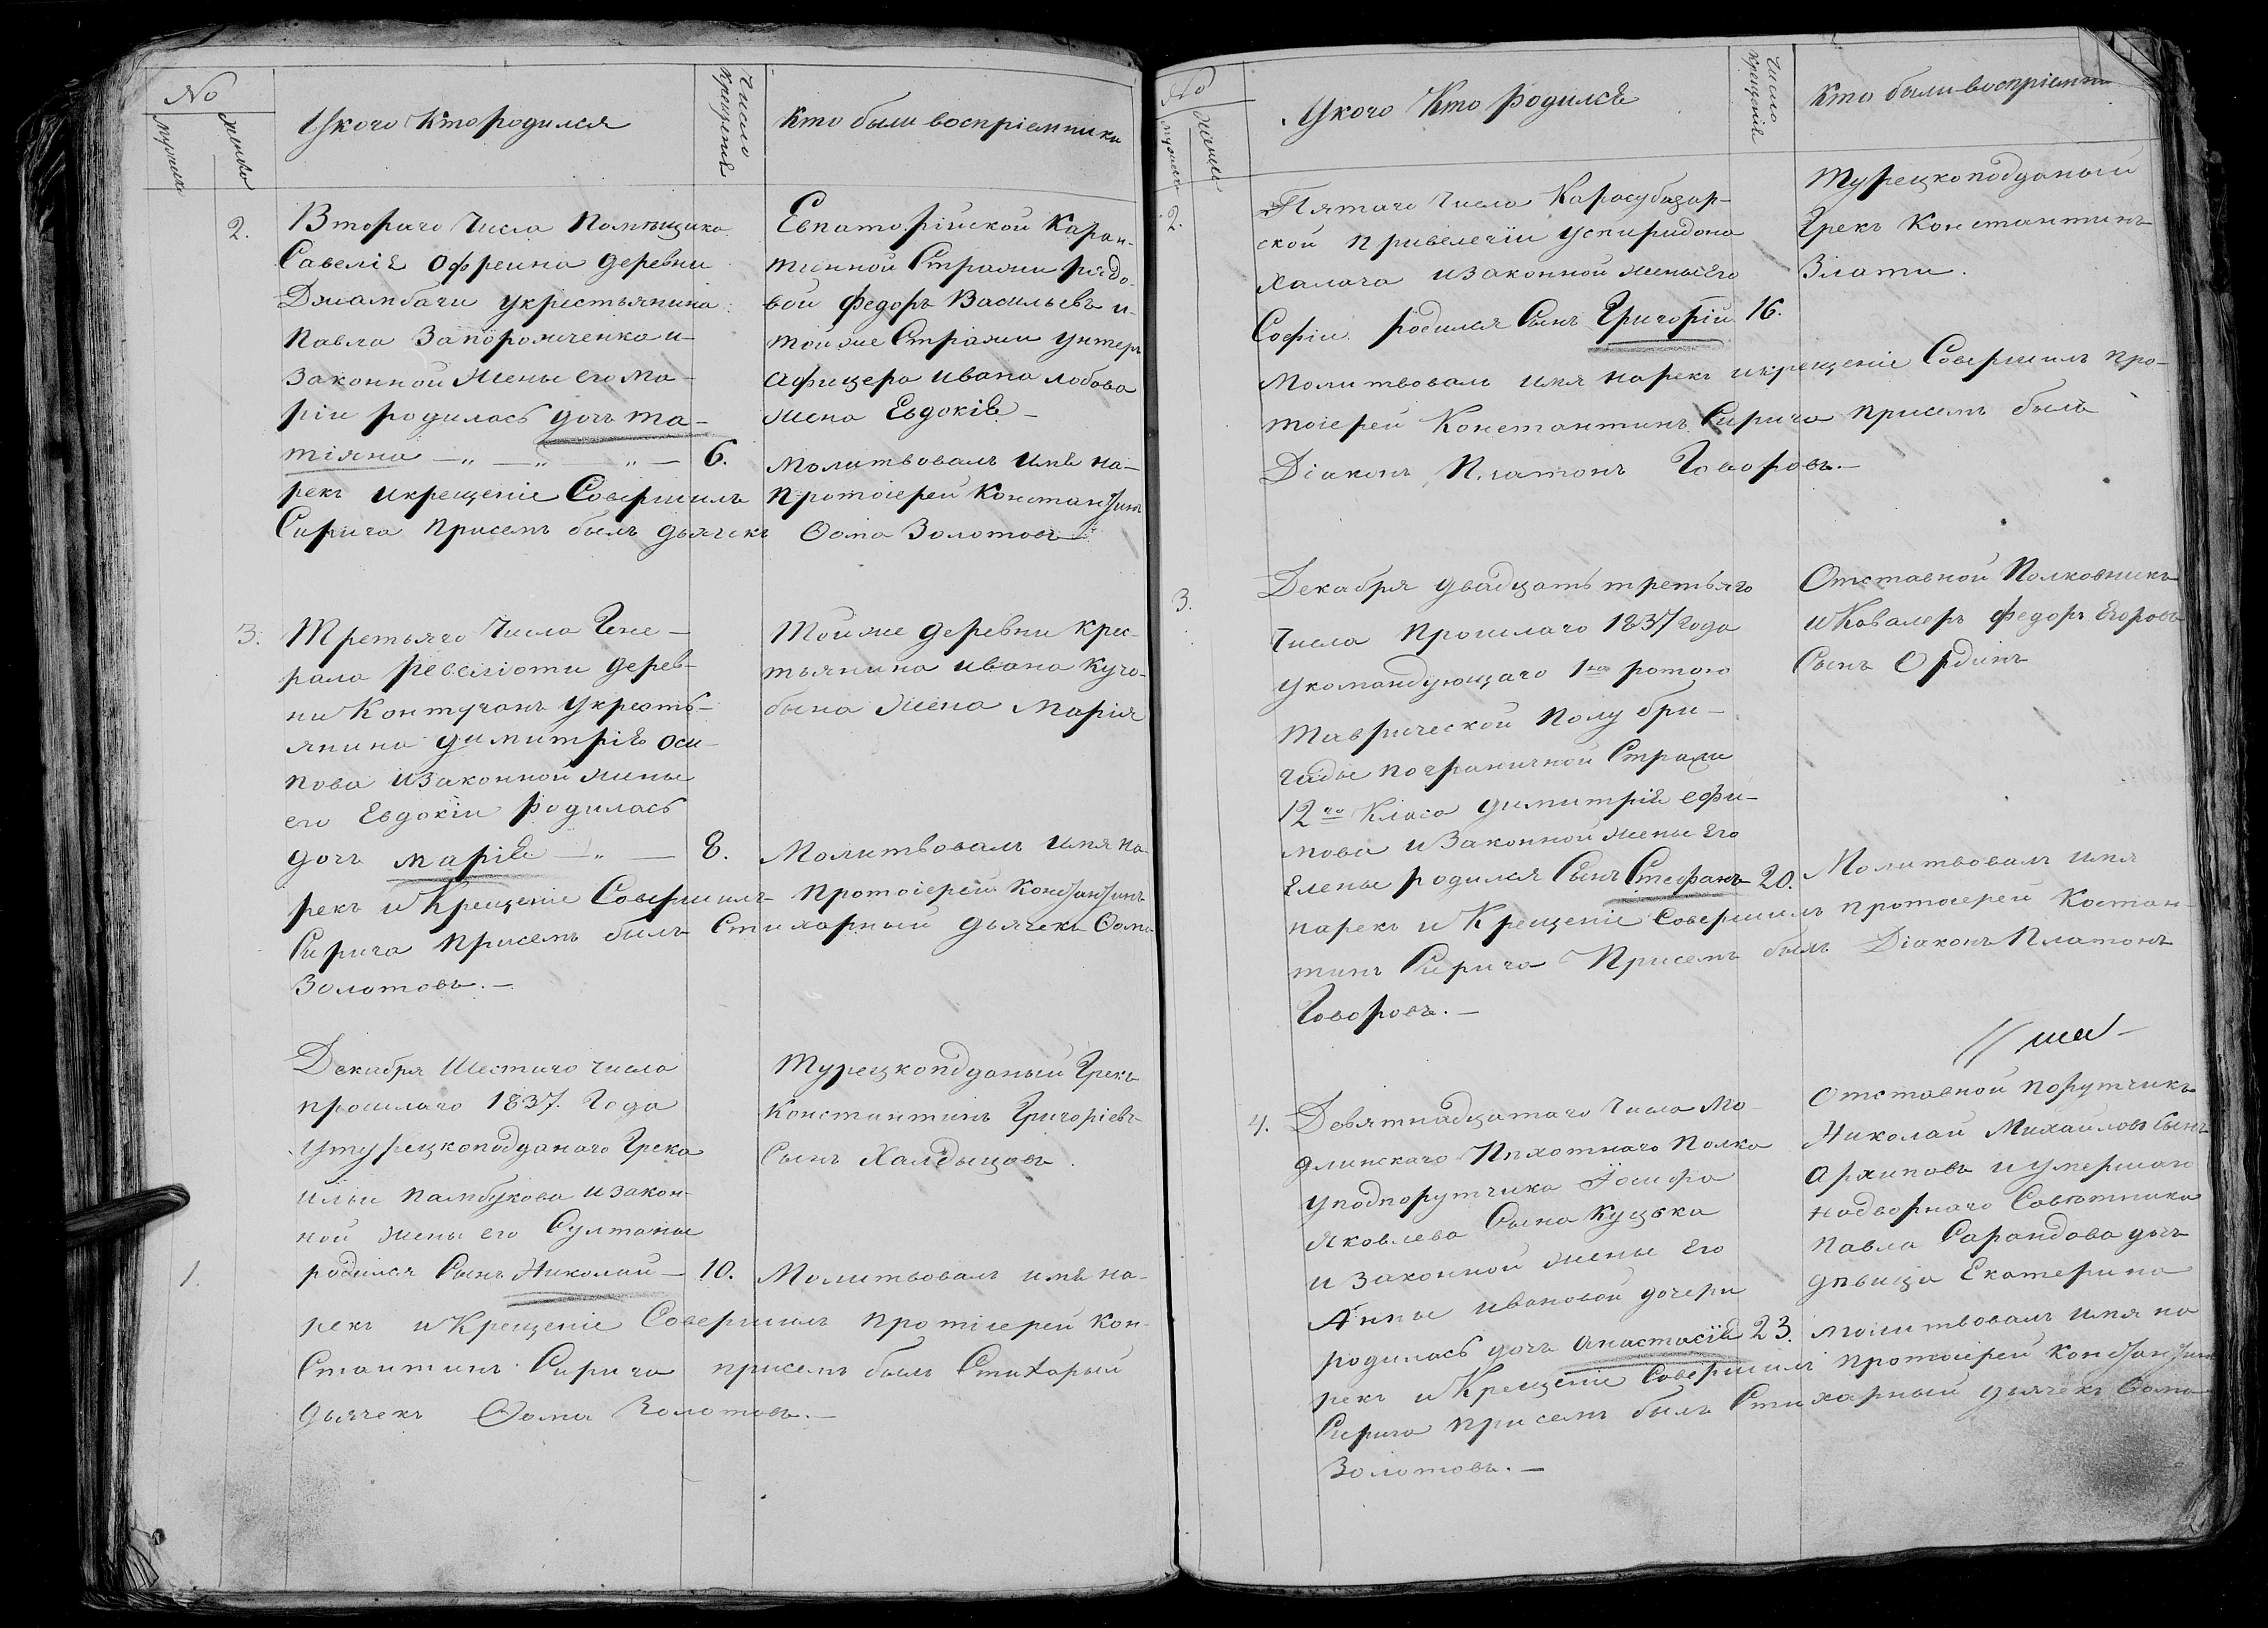 No
мужеска
женска
Укого Кто родился
Число крещенія
Кто были воспріемники
2.
Втораго Числа Помѣщика
Савелія Офреина деревни
Джамбачи укрестьянина
Павла Запорожченка и
законной жены его Ма-
ріи родилась дочь Та-
тіяна — „ — „ — „ — 6.
Евпаторійской Каран-
тинной Стражи рядо-
вой Федоръ Васильевъ и
тойже Стражи унтеръ
Афицера Ивана Лобова
жена Евдокія —
Молитвовалъ Имя на-
рекъ икрещеніе Совершилъ Протоіерей Константинъ
Сирича присемъ былъ дьячекъ Ѳома Золотовъ.—
3.
Третьяго Числа Гене-
рала Ревеліоти дерев-
ни Контуганъ укресть-
янина димитрія Оси-
пова изаконной жены
его Евдокіи родилась
дочь Марія — „ — 8.
Тойже деревни Крес-
тьянина Ивана Куго-
быча жена Марія
Молитвовалъ Имя на-
рекъ и Крещеніе Совершилъ Протоіерей Константинъ
Сирича присемъ былъ Стихарный дьячекъ Ѳома
Золотовъ.—
Декабря Шестаго числа
прошлаго 1837. Года
Утурецкоподданаго Грека
Ильи Памбукова изакон-
ной жены его Султаны
1.
родился Сынъ Николай — 10.
Турецкопдданый Грекъ
Константинъ Григоріевъ
Сынъ Халдыцовъ.
Молитвовалъ имя на-
рекъ и Крещеніе Совершилъ Протіерей Кон-
стантинъ Сирича присемъ былъ Стихарый
дьячекъ Ѳома Золотовъ.—
No
мужеска
женска
Укого Кто родился
Число крещенія
Кто были воспріемни
2.
Пятаго Числа Карасубазар-
ской Привелегіи Успиридона
Халача изаконной жены Его
Софіи родился Сынъ Григорій 16.
Турецкоподданый
Грекъ Константинъ
Злати.
Молитвовалъ имя нарекъ икрещеніе Совершилъ Про-
тоіерей Константинъ Сирича присемъ былъ
Діаконъ Платонъ Говоровъ.—
3.
Декабря двадцать третьяго
Числа Прошлаго 1837 года
укомандующаго 1ю ротою
Таврической Полу бри-
гады пограничной Стражи
12го Класа димитрія Ефи-
мова и Законной жены Его
Елены родился Сынъ Стефанъ 20.
Отставной Полковникъ
и Кавалеръ Федоръ Егоровъ
Сынъ Ординъ
Молитвовалъ имя
нарекъ и Крещеніе Совершилъ протоіерей Констан-
тинъ Сирича Присемъ былъ Діаконъ Платонъ
Говоровъ.—
4.
Девятнадцатаго Числа Мо-
длинскаго Пѣхотнаго Полка
уподпорутчика Іосифа
Яковлева Сына Куцька
и законной жены Его
Анны Ивановой дочери
родилась дочь Анастасія 23.
Отставной Порутчикъ
Николай Михайловъ Сынъ
Архиповъ и умершаго
надворнаго Совѣтника
Павла Сарандова дочь
дѣвица Екатерина
Молитвовалъ имя на
рекъ и Крещеніе Совершилъ Протоіерей Константинъ
Сирича присемъ былъ Стихарный дьячекъ Ѳома
Золотовъ.—